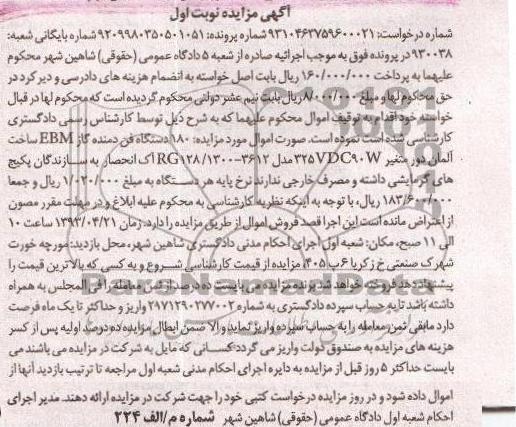 آگهی مزایده نوبت اول
شماره درخواست: ۹۳۱۰۴۶۳۷۵۹۶۰۰۰۲۱ شماره پرونده: ۹۲۰۹۹۸۰۳۵۰۵۰۱۰۵۱ شماره بایگانی شعبه:
۹۳۰۰۳۸ در پرونده فوق به موجب اجرائیه صادره از شعبه ۵ دادگاه عمومی (حقوقی) شاهین شهر محکوم
علیهما به پرداخت ۱۶۰/۰۰۰/۰۰۰ ریال بابت اصل خواسته به انضمام هزینه های دادرسی و دیرکرد در
حق محکوم لها و مبلغ ۸/۰۰۰/۰۰۰ ریال بابت نیم عشر دولتی محکوم گردیده است که محکوم لها در قبال
خواسته خود اقدام به توقیف اموال محکوم علیهما که به شرح ذیل توسط کارشناس رسمی دادگستری
کارشناسی شده است نموده است. صورت اموال مورد مزایده: ۱۸۰ دستگاه فن دمنده گاز EBM ساخت
آلمان دور متغیر ۳۲۵VDC۹۰W مدل RG۱۲۸/۱۳۰۰-۳۶۱۲ آک انحصار به سازندگان پکیج
های گرمایشی داشته و مصرف خارجی ندارند نرخ پایه هر دستگاه به مبلغ ۱/۰۲۰/۰۰۰ ریال و جمعا
۱۸۳/۶۰۰/۰۰۰ ریال، با توجه به اینکه نظریه کارشناسی به محکوم علیه ابلاغ و در مهلت مقرر مصون
از اعتراض مانده است این اجرا قصد فروش اموال از طریق مزایده را دارد. زمان ۱۳۹۳/۰۴/۲۱ ساعت ۱۰
الی ۱۱ صبح، مکان: شعبه اول اجرای احکام مدنی دادگستری شاهین شهر، محل بازدید: مورچه خورت
شهرک صنعتی خ زکریا ۶ پ ۴۰۵، مزایده از قیمت کارشناسی شروع و به کسی که بالاترین قیمت را
پیشنهاد دهد فروخته خواهد شد برنده مزایده می بایست ده درصد از ثمن معامله را فی المجلس به همراه
داشته باشد تا به حساب سپرده دادگستری به شماره ۲۱۷۱۲۹۰۲۷۷۰۰۲ واریز و حداکثر تا یک ماه فرصت
دارد مابقی ثمن معامله را به حساب سپرده واریز نماید والا ضمن ابطال مزایده ده درصد اولیه پس از کسر
هزینه های مزایده به صندوق دولت واریز می گردد کسانی که مایل به شرکت در مزایده می باشند می
بایست حداکثر ۵ روز قبل از مزایده به دایره اجرای احکام مدنی شعبه اول مراجعه تا ترتیب بازدید آنها از
اموال داده شود و در روز مزایده درخواست کتبی خود را جهت شرکت در مزایده ارائه دهند. مدیر اجرای
احکام شعبه اول دادگاه عمومی (حقوقی) شاهین شهر شماره م/الف ۲۲۴